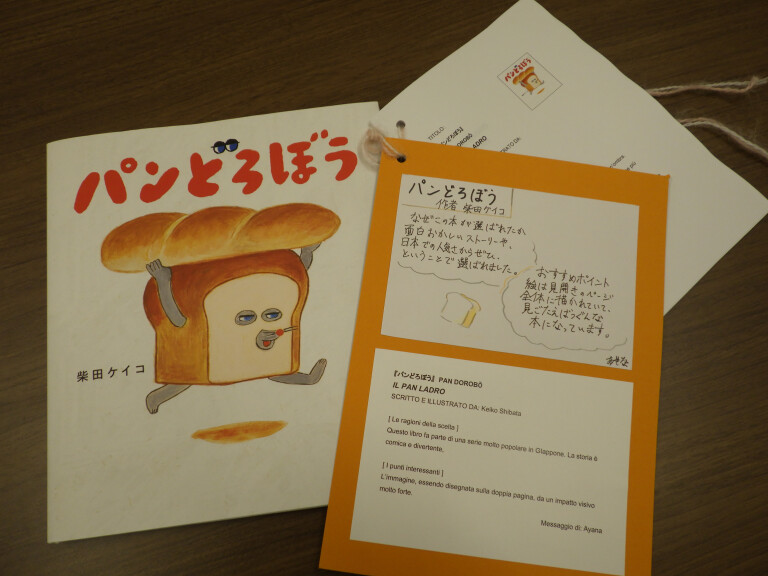 パンどろぼう
柴田ケイコ
パンどろぼう
TITOLO
パンどろぼう
作者 柴田ケイコ
なぜこの本が選ばれたか
面白おかしいストーリーや、
日本での人気さからぜひ、
ということで選ばれました。
おすすめポイント
絵は見開きのページ
全体に描かれていて、
見ごたえばつぐんな
本になっています。
『パンどろぼう』 PAN DOROBŌ
IL PAN LADRO
SCRITTO E ILLUSTRATO DA: Keiko Shibata
[ Le ragioni della scelta ]
Questo libro fa parte di una serie molto popolare in Giappone. La storia è
comica e divertente.
[ I punti interessanti ]
L'immagine, essendo disegnata sulla doppia pagina, da un impatto visivo
molto forte.
Messaggio di: Ayana